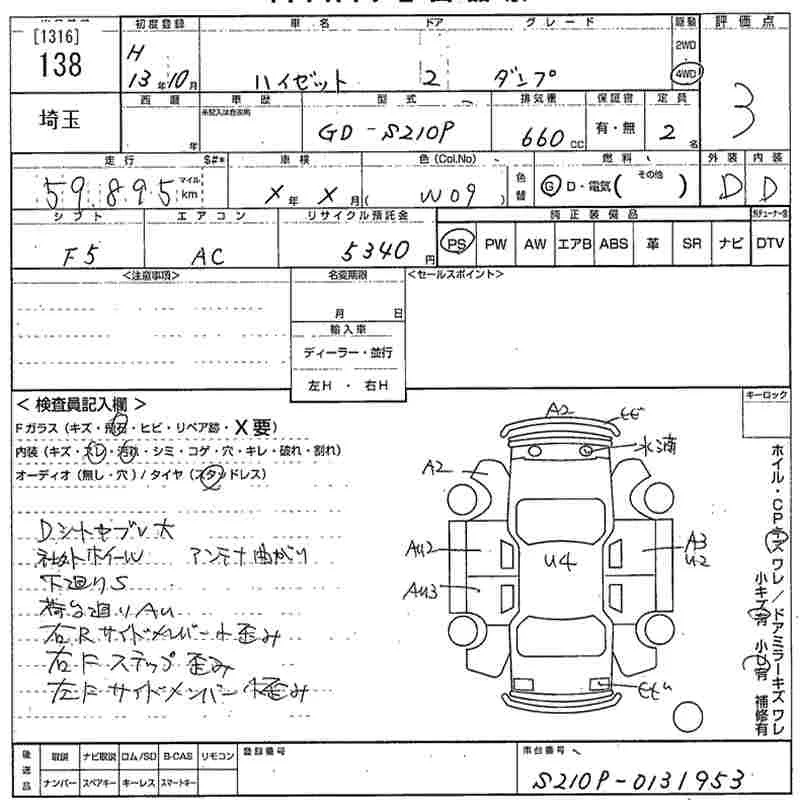 [1316]
138
埼玉
初度登録
H
13年10月
車名
ハイゼット
ドア
2
グレード
ダンプ
駆動
2WD
4WD
評価点
3
西暦
年
車歴
未記入は自家用
型式
GD-S210P
排気量
660cc
保証書
有・無
定員
2名
走行
59,895
マイル
km
S#*
車検
X年X月
色(Col.No)
( W09 )
色替
燃料
G D・電気( その他 )
外装
D
内装
D
シフト
F5
エアコン
AC
リサイクル預託金
5340円
純正装備品
PS PW AW エアB ABS 革 SR ナビ
DTV
<注意事項>
名変期限
月 日
輸入車
ディーラー・並行
左H・右H
<セールスポイント>
<検査員記入欄>
Fガラス(キズ・飛石・ヒビ・リペア跡・X要)
内装(キズ・スレ・汚れ・シミ・コゲ・穴・キレ・破れ・割れ)
オーディオ(無し・穴)/タイヤ(スタッドレス)
キーロック
Dシートヤブレ大
ホイール アンテナ曲がり
下廻りS
荷台廻りAU
右Rサイドメンバー小歪み
右Fステップ歪み
左Fサイドメンバー小歪み
A2
ヒビ
水滴
A2
AU2
AU3
U4
A3
U2
ヒビ
ホイル・CPキズ ワレ/ドアミラーキズ ワレ
小キズ有 小U有 補修有
後送品
取説 ナビ取説 ロム/SD B-CAS リモコン
ナンバー スペアキー キーレス スマートキー
登録番号
車台番号
S210P-0131953